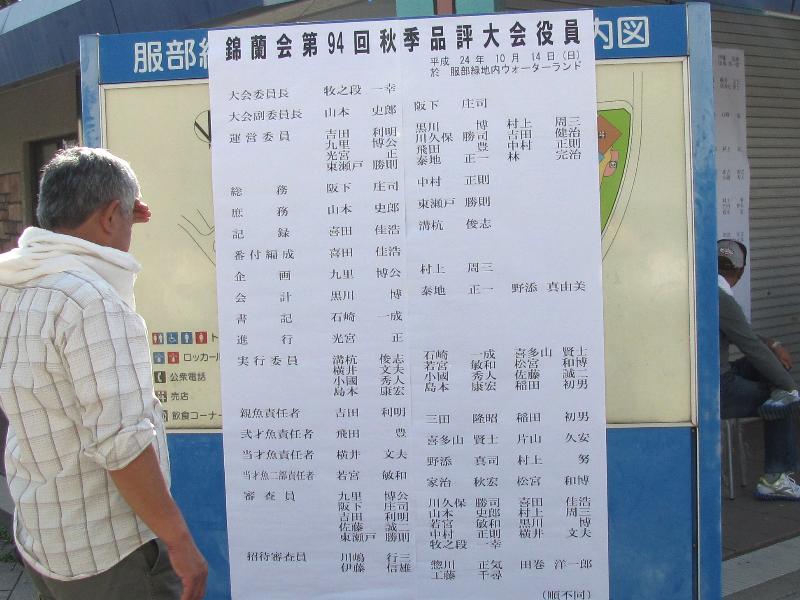 服部緑
内図
錦蘭会第94回秋季品評大会役員
平成 24年 10月 14日(日)
於 服部緑地内ウォーターランド
大会委員長 牧之段 一幸
大会副委員長 山本 史郎 阪下 庄司
運営委員 吉田 利明 黒川 博 村上 周三
九里 博公 川久保 勝司 吉田 健治
光宮 正 飛田 豊 中村 正則
東瀬戸 勝則 泰地 正一 林 完治
総務 阪下 庄司 中村 正則
庶務 山本 史郎 東瀬戸 勝則
記録 喜田 佳浩 溝杭 俊志
番付編成 喜田 佳浩
企画 九里 博公 村上 周三
会計 黒川 博 泰地 正一 野添 真由美
書記 石崎 一成
進行 光宮 正
実行委員 溝杭 俊志 石崎 一成 喜多山 賢士
横井 文夫 若宮 敏和 松宮 和博
小國 秀人 小國 秀人 佐藤 誠二
島本 康宏 島本 康宏 稲田 初男
親魚責任者 吉田 利明 三田 隆昭 稲田 初男
弐才魚責任者 飛田 豊 喜多山 賢士 片山 久安
当才魚責任者 横井 文夫 野添 真司 村上 努
当才魚二部責任者 若宮 敏和 家治 秋宏 松宮 和博
審査員 九里 博公 川久保 勝司 喜田 佳浩
阪下 庄司 山本 史郎 村上 周三
吉田 利明 若宮 敏和 黒川 博
佐藤 誠二 中村 正則 横井 文夫
東瀬戸 勝則 牧之段 一幸
招待審査員 川嶋 行三 惣川 正気 田巻 洋一郎
伊藤 信雄 工藤 千尋
(順不同)
ト
ロッカー
公衆電話
売店
飲食コーナー